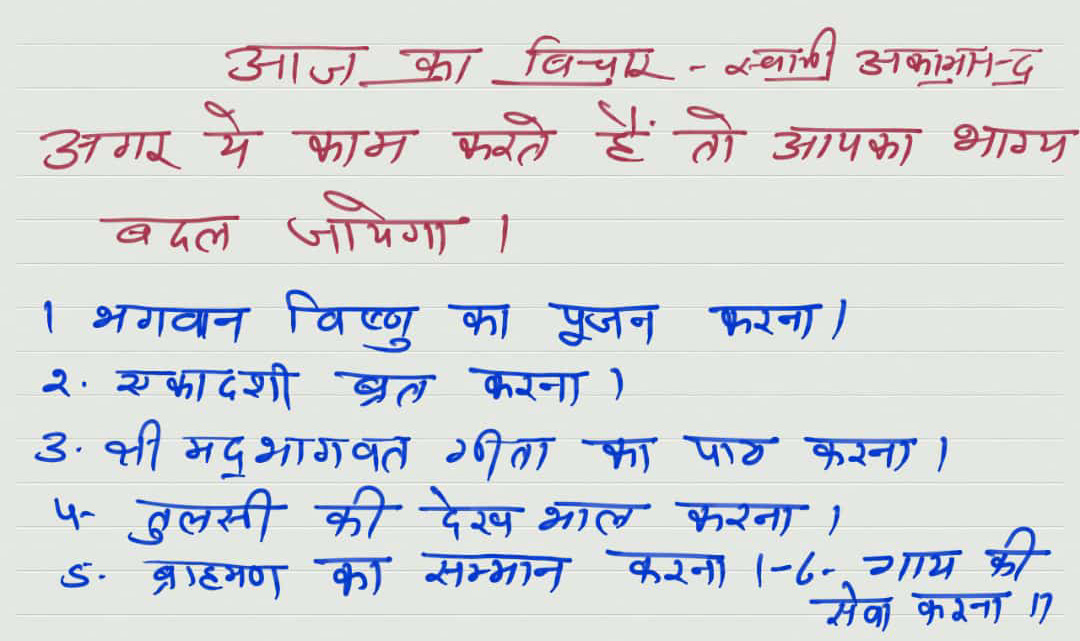 आज का विचार - स्वामी अकामानन्द
अगर ये काम करते हैं तो आपका भाग्य
बदल जायेगा ।
1 भगवान विष्णु का पूजन करना ।
२. एकादशी ब्रत करना ।
3. श्री मद्भागवत गीता का पाठ करना ।
५- तुलसी की देख भाल करना ।
5. ब्राहमण का सम्मान करना ।-6- गाय की
सेवा करना ।7